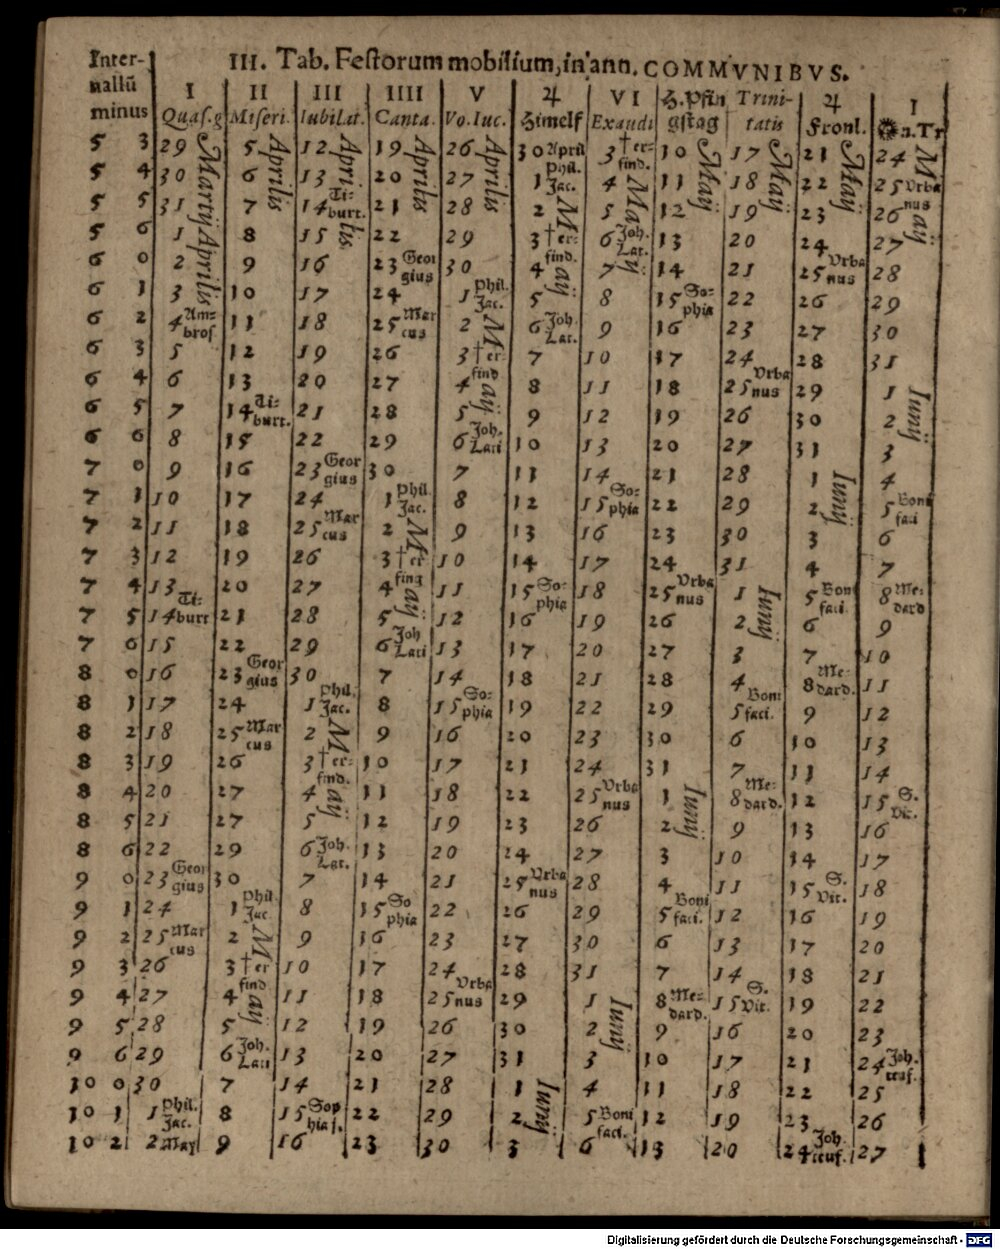 Inter- III. Tab. Festorum mobilium, in ann. COMMVNIBVS.
uallũ I II III IIII V ♃ VI H. Pfin Trini- ♃ I
minus Quas.g Miseri. Iubilat. Canta. Vo.Iuc. Himelf Exaudi gstag tatis Fronl. n.Tr
5 3 29 Martij 5 Aprilis 12 Aprilis 19 Aprilis 26 Aprilis 30 April 3 †er-find. 10 Maij 17 Maij 21 Maij 24 Maij
5 4 30 6 13 20 27 1 Phil. Jac. Maij 4 Maij 11 18 22 25 Vrbanus
5 5 31 7 14 Tiburt. 21 28 2 5 12 19 23 26
5 6 1 Aprilis 8 15 22 29 3 †er-find. 6 Joh. Lat. 13 20 24 27
6 0 2 9 16 23 Georgius 30 4 7 14 21 25 Vrbanus 28
6 1 3 10 17 24 1 Phil. Jac. Maij 5 8 15 Sophia 22 26 29
6 2 4 Ambros 11 18 25 Marcus 2 6 Joh. Lat. 9 16 23 27 30
6 3 5 12 19 26 3 †er-find 7 10 17 24 28 31
6 4 6 13 20 27 4 8 11 18 25 Vrbanus 29 1 Iunij
6 5 7 14 Tiburt. 21 28 5 9 12 19 26 30 2
6 6 8 15 22 29 6 Joh. Lati 10 13 20 27 31 3
7 0 9 16 23 Georgius 30 7 11 14 21 28 1 Iunij 4
7 1 10 17 24 1 Phil. Jac. Maij 8 12 15 Sophia 22 29 2 5 Bonifaci
7 2 11 18 25 Marcus 2 9 13 16 23 30 3 6
7 3 12 19 26 3 †erfing 10 14 17 24 31 4 7
7 4 13 20 27 4 11 15 Sophia 18 25 Vrbanus 1 Iunij 5 Bonifaci. 8 Medard
7 5 14 Tiburt 21 28 5 12 16 19 26 2 6 9
7 6 15 22 29 6 Joh Lati 13 17 20 27 3 7 10
8 0 16 23 Georgius 30 7 14 18 21 28 4 8 Medard. 11
8 1 17 24 1 Phil. Jac. Maij 8 15 Sophia 19 22 29 5 Bonifaci. 9 12
8 2 18 25 Marcus 2 9 16 20 23 30 6 10 13
8 3 19 26 3 †er-find. 10 17 21 24 31 7 11 14
8 4 20 27 4 11 18 22 25 Vrbanus 1 Iunij 8 Medard. 12 15 S. Vit.
8 5 21 27 5 12 19 23 26 2 9 13 16
8 6 22 29 6 Joh. Lat. 13 20 24 27 3 10 14 17
9 0 23 Georgius 30 7 14 21 25 Vrbanus 28 4 11 15 S. Vit. 18
9 1 24 1 Phil Jac. Maij 8 15 Sophia 22 26 29 5 Bonifaci. 12 16 19
9 2 25 Marcus 2 9 16 23 27 30 6 13 17 20
9 3 26 3 †erfind 10 17 24 28 31 7 14 18 21
9 4 27 4 11 18 25 Vrbanus 29 1 Iunij 8 Medard. 15 S. Vit. 19 22
9 5 28 5 12 19 26 30 2 9 16 20 23
9 6 29 6 Joh. Lati 13 20 27 31 3 10 17 21 24 Joh. teuf.
10 0 30 7 14 21 28 1 Iunij 4 11 18 22 25
10 1 1 Phil. Jac. 8 15 Sophia s. 22 29 2 5 Bonifaci. 12 19 23 26
10 2 2 May 9 16 23 30 3 6 13 20 24 Joh. teuf. 27
Digitalisierung gefördert durch die Deutsche Forschungsgemeinschaft - DFG